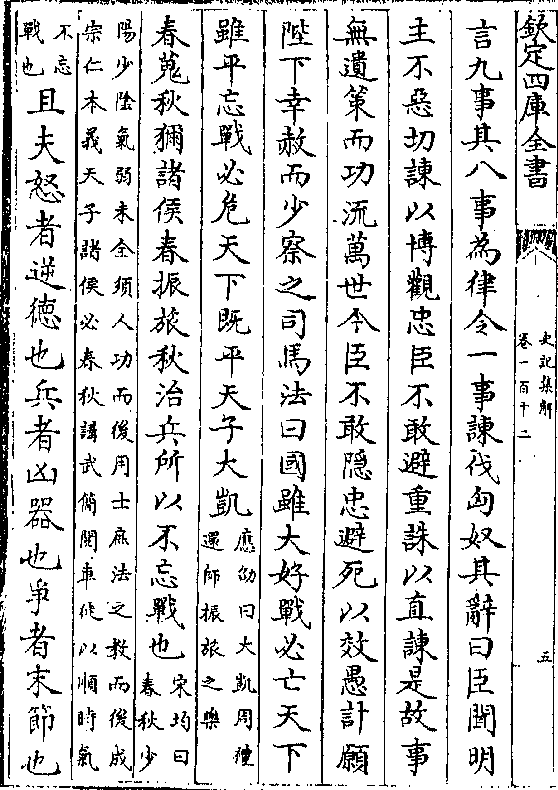 欽定四庫全書
史記集解
卷一百十二
五
言九事其八事為律令一事諫伐匈奴其辭曰臣聞明
主不惡切諫以博觀忠臣不敢避重誅以直諫是故事
無遺策而功流萬世今臣不敢隱忠避死以效愚計願
陛下幸赦而少察之司馬法曰國雖大好戰必亡天下
雖平忘戰必危天下既平天子大凱
應劭曰大凱周禮
還師振旅之樂
春蒐秋獮諸侯春振旅秋治兵所以不忘戰也
宋均曰
春秋少
陽少陰氣弱未全須人功而後用士庶法之教而後成
宗仁本義天子諸侯必春秋講武簡閱車徒以順時氣
不忘
戰也
且夫怒者逆德也兵者凶器也爭者末節也